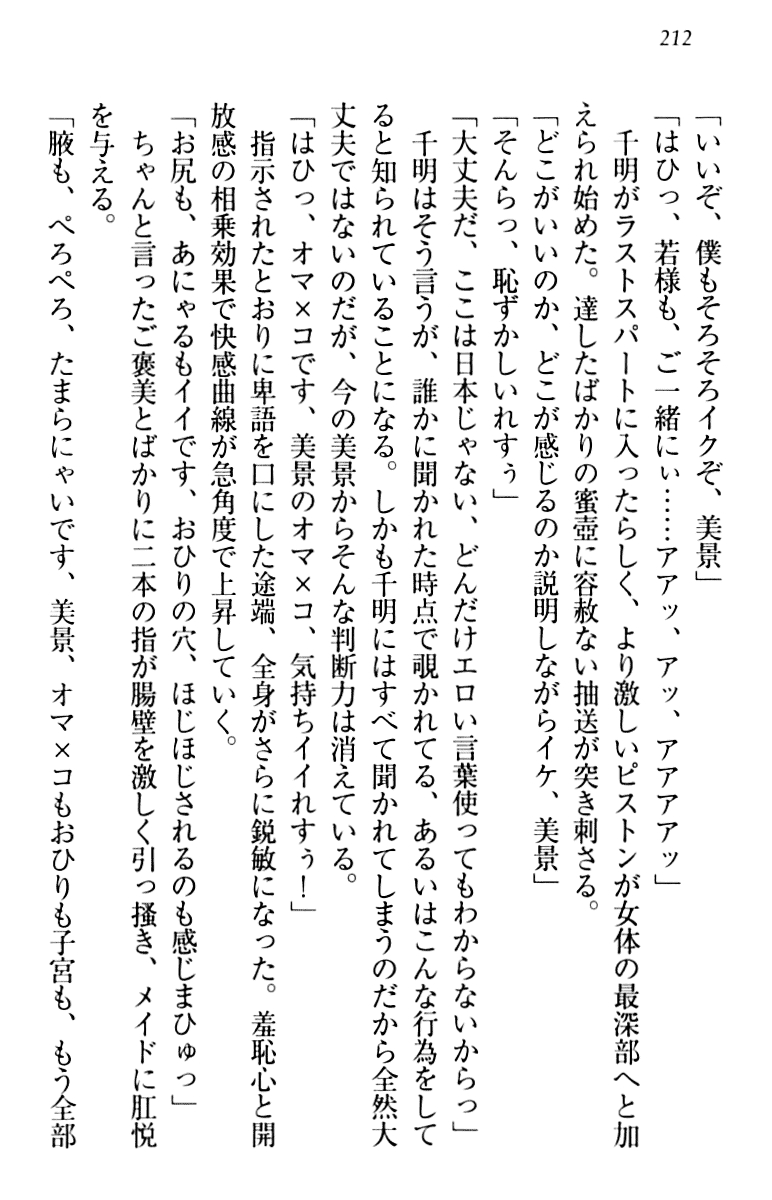 212
「いいぞ、僕もそろそろイクぞ、美景」
「はひっ、若様も、ご一緒にぃ……アアッ、アッ、アアアアッ」
　千明がラストスパートに入ったらしく、より激しいピストンが女体の最深部へと加
えられ始めた。達したばかりの蜜壺に容赦ない抽送が突き刺さる。
「どこがいいのか、どこが感じるのか説明しながらイケ、美景」
「そんらっ、恥ずかしいれすぅ」
「大丈夫だ、ここは日本じゃない、どんだけエロい言葉使ってもわからないからっ」
　千明はそう言うが、誰かに聞かれた時点で覗かれてる、あるいはこんな行為をして
ると知られていることになる。しかも千明にはすべて聞かれてしまうのだから全然大
丈夫ではないのだが、今の美景からそんな判断力は消えている。
「はひっ、オマ×コです、美景のオマ×コ、気持ちイイれすぅ！」
　指示されたとおりに卑語を口にした途端、全身がさらに鋭敏になった。羞恥心と開
放感の相乗効果で快感曲線が急角度で上昇していく。
「お尻も、あにゃるもイイです、おひりの穴、ほじほじされるのも感じまひゅっ」
　ちゃんと言ったご褒美とばかりに二本の指が腸壁を激しく引っ掻き、メイドに肛悦
を与える。
「腋も、ぺろぺろ、たまらにゃいです、美景、オマ×コもおひりも子宮も、もう全部